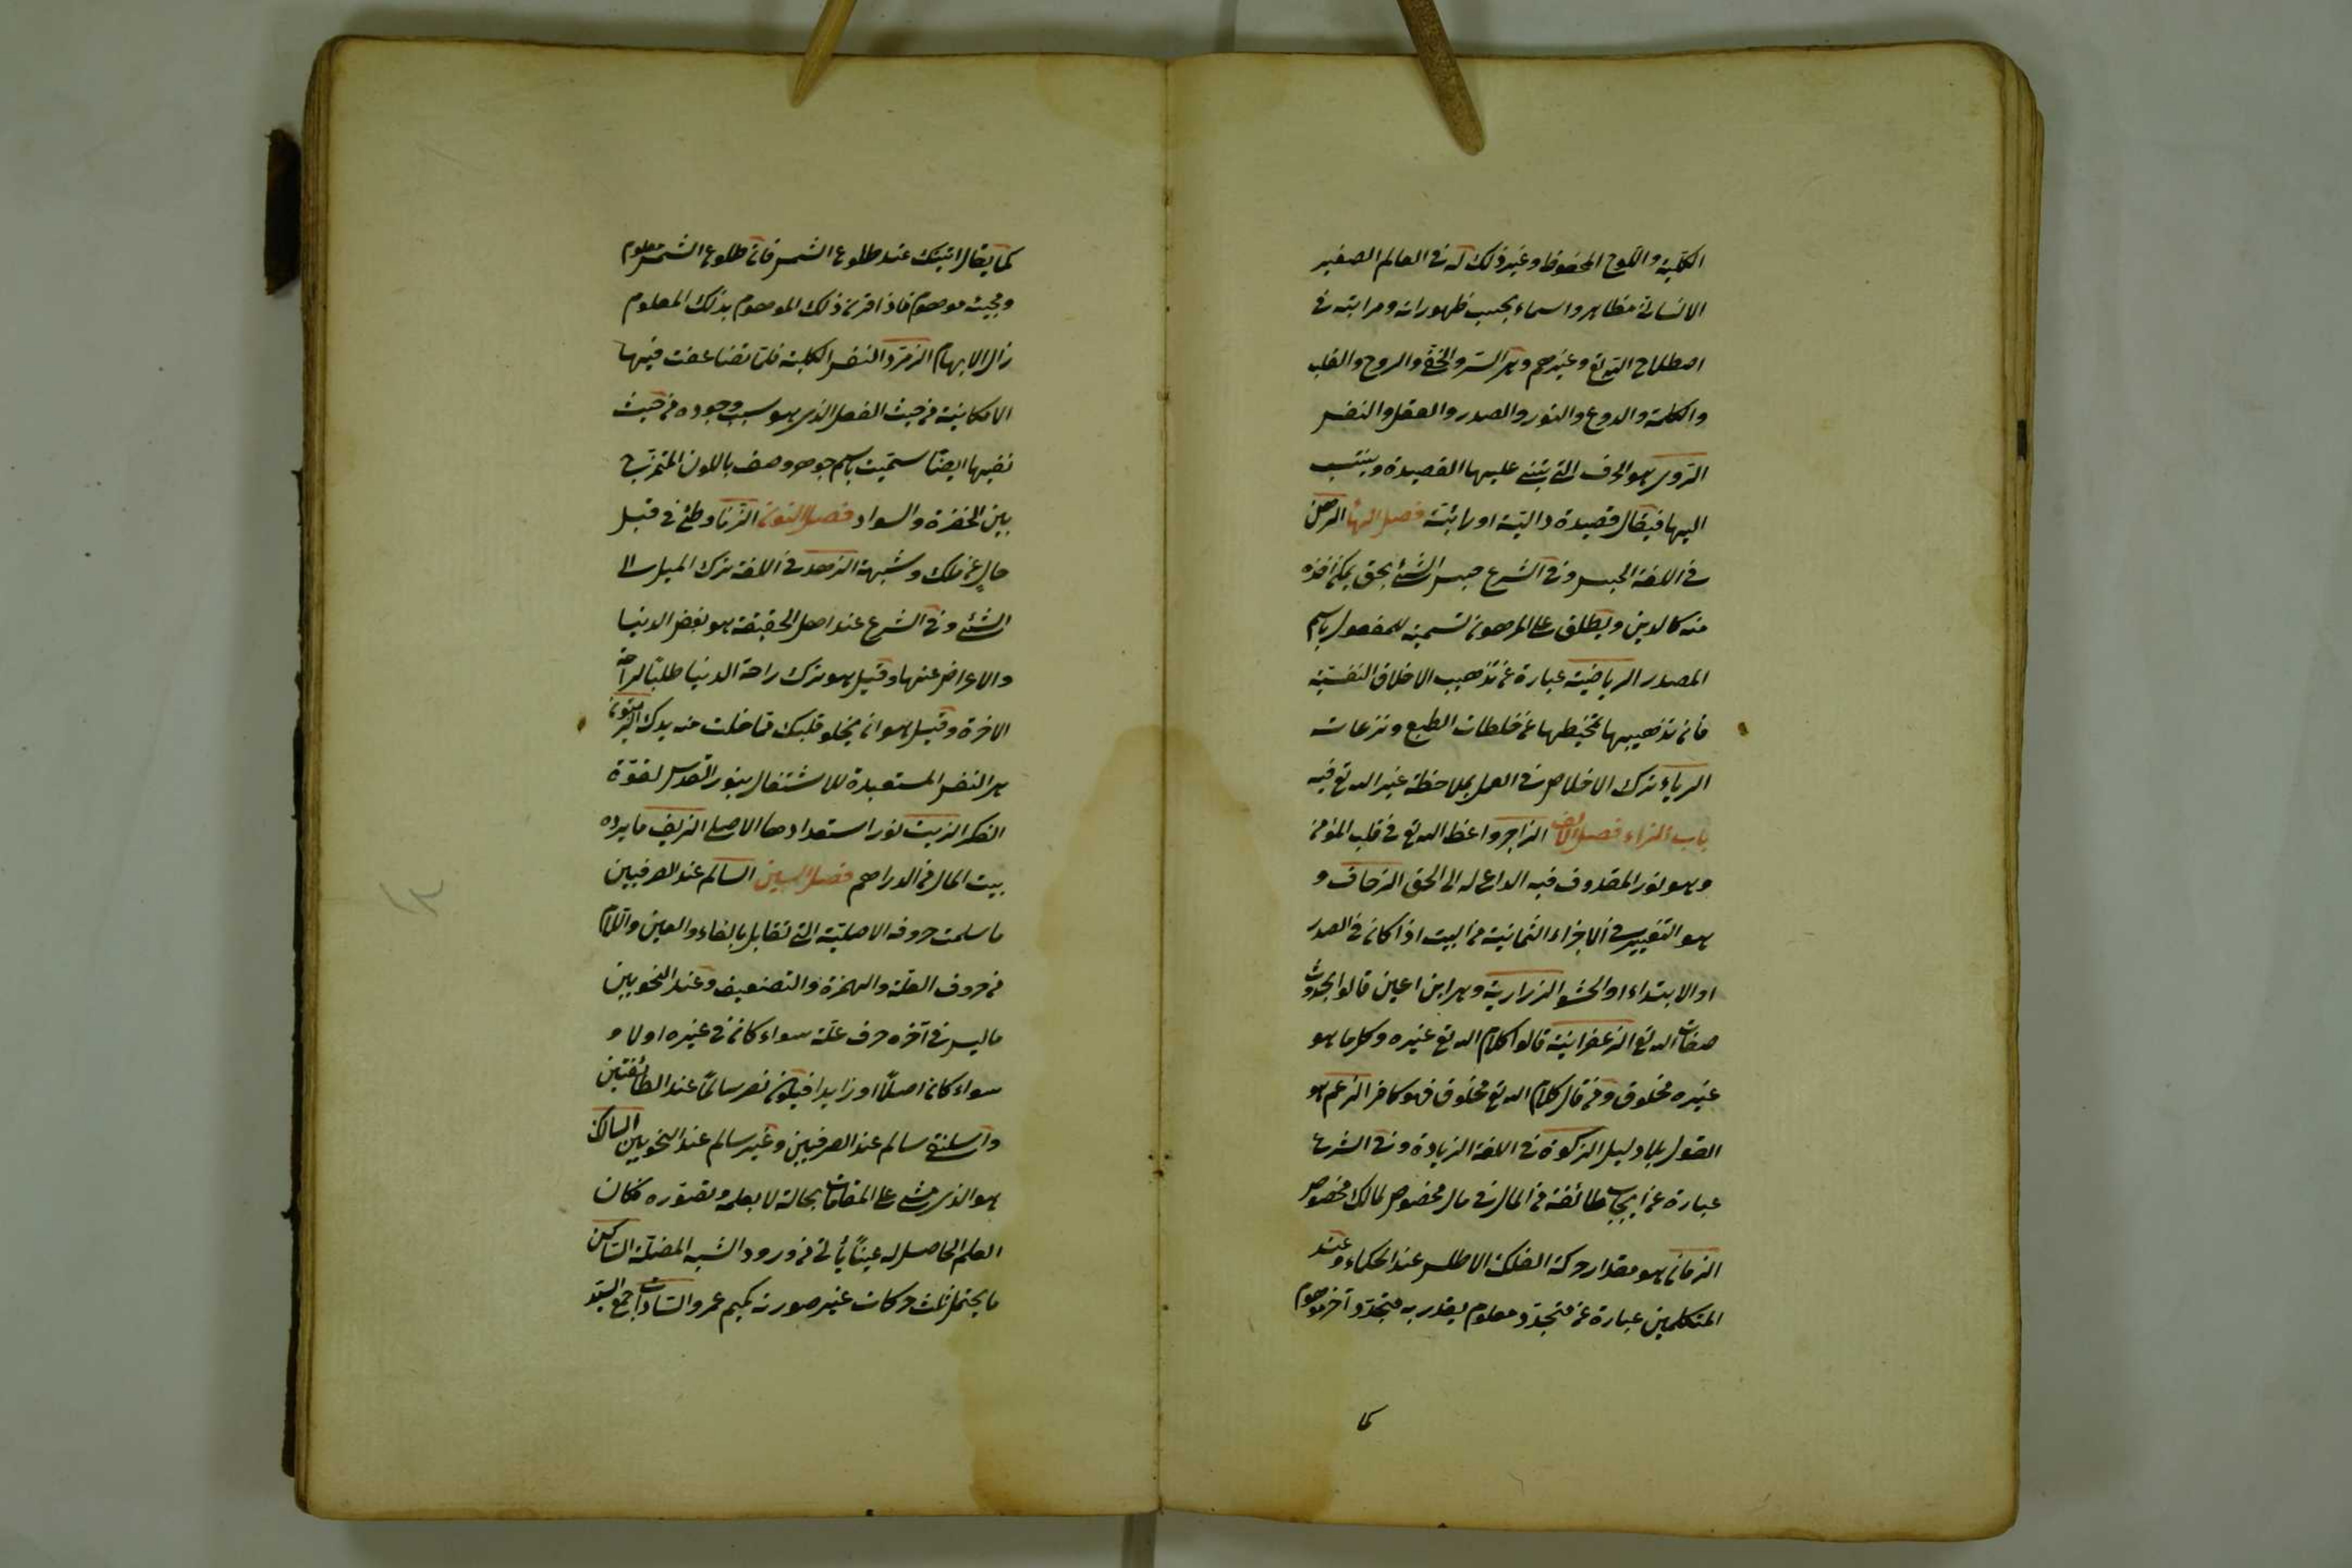 الكلية واللوح المحفوظ وغير ذلك له في العالم الصغير
الانساني مظاهر واسماء بحسب ظهوراته ومراتبه في
اصطلاح اللّه تع وغيرهم وهي السر والخفي والروح والقلب
والكلمة والروع والنور والصدر والعقل والنفس
الروي هو الحرف التي تبتني عليها القصيدة وينتسب
اليها فيقال قصيدة دالية او رائية فصل الهاء الرهن
في اللغة الحبس وفي الشرع حبس الشئ بحق يمكن اخذه
منه كالدين ويطلق على المرهون تسمية للمفعول باسم
المصدر الرياضية عبارة عن تذهيب الاخلاق النفسية
فان تذهيبها تخيطها عن خلطات الطبع ونزعات
الرياء ترك الاخلاص في العمل بملاحظة غير الله تع فيه
باب الزاء فصل الالف الزاجر واعظ الله تع في قلب المؤمن
وهو نور المقذوف فيه الداع له الى الحق الزحاف و
هو التغيير في الاجزاء الثمانية من البيت اذا كان في الصدر
او الابتداء او الحشو الزرارية وهي ابن اعين قالوا بحدوث
صفات الله تع الزعفرانية قالوا كلام الله تع غيره وكل ما هو
غيره مخلوق ومن قال كلام الله تع مخلوق فهو كافر الزعم هو
القول بلا دليل الزكوة في اللغة الزيادة وفي الشرع
عبارة عن ايجاب طائفة من المال في مال مخصوص لمالك مخصوص
الزمان هو مقدار حركة الفلك الاطلس عند الحكماء وعند
المتكلمين عبارة عن متجدد معلوم يقدر به متجدد آخر موهوم
كما
كما يقال اتيتك عند طلوع الشمس فان طلوع الشمس معلوم
ومجيئه موهوم فاذا اقرن ذلك الموهوم بذلك المعلوم
زال الابهام الزمرد النفس الكلية فلما تضاعفت فيها
الامكانية من حيث الفعل الذي هو سبب وجوده من حيث
نفسها ايضا سميت باسم جوهر وصف باللون الممتزج
بين الخضرة والسواد فصل النون الزنا وطئ في قبل
خال عن ملك وشبهة الزهد في اللغة ترك الميل الى
الشئ وفي الشرع عند اهل الحقيقة هو بغض الدنيا
والاعراض عنها وقيل هو ترك راحة الدنيا طلبا لراحة
الاخرة وقيل هو ان يخلو قلبك مما خلت منه يدك الزيتون
هي النفس المستعدة للاشتغال بنور القدس لقوة
الفكر الزيت نور استعدادها الاصلي الزيف ما يرده
بيت المال من الدراهم فصل السين السالم عند الصرفيين
ما سلمت حروفه الاصلية التي تقابل بالفاء والعين واللام
من حروف العلة والهمزة والتضعيف وعند النحويين
ما ليس في آخره حرف علة سواء كان في غيره اولا و
سواء كان اصلا او زايدا فيكون نصر سالما عند الطائفتين
واسلنقى سالم عند الصرفيين وغير سالم عند النحويين السالك
هو الذي مشى على المقامات بحاله لا بعلمه وتصوره فكان
العلم الحاصل له عينا يأتي من ورود الشبه المضلة الساكن
ما يحتمل ثلث حركات غير صورته كميم عمرو السادات جمع السيد